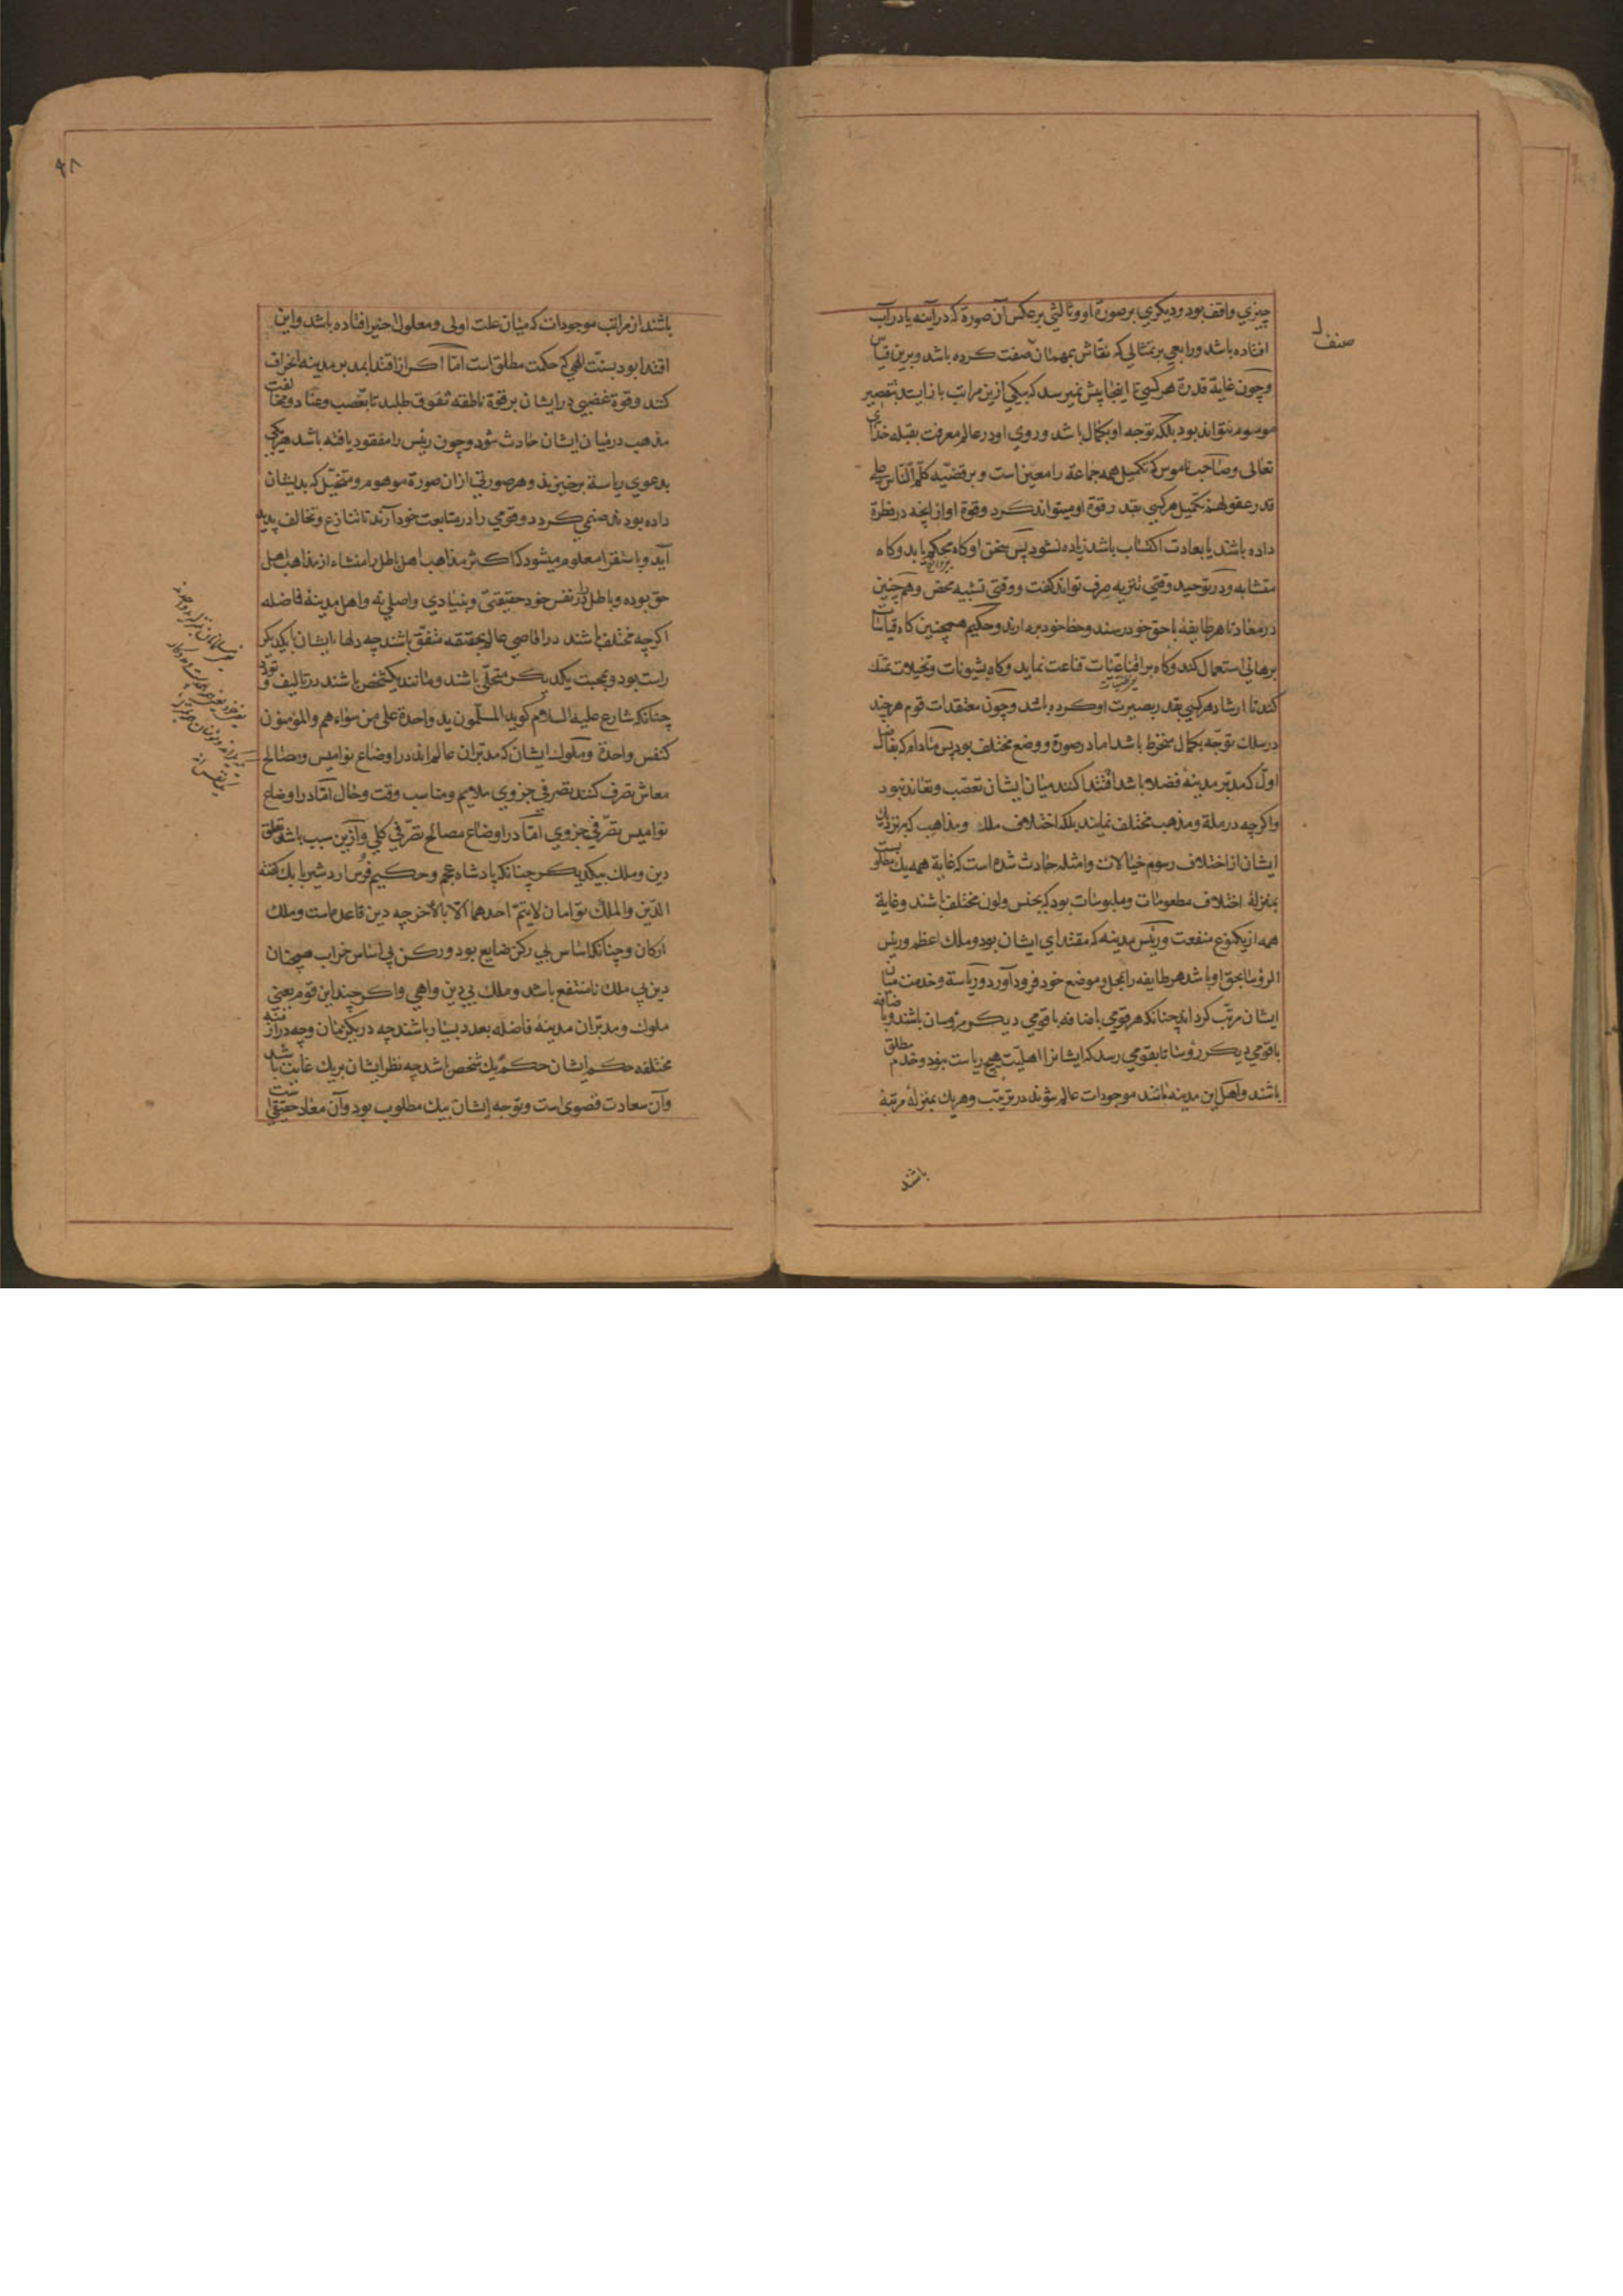 چیزی واقف بود و دیکری بر صورة او و ثالثی بر عکس آن صورة که در آینه یا در آب
افتاده باشد و رابعی بر تمثالی که نقّاش بهمان صفت کرده باشد و برین قیاس
و چون غایة قدرة هر کسی تا اینجا پیش نمیرسد که بیکی ازین مراتب باز ایستد بتقصیر
موسوم نتواند بود بلکه توجه او بکمال باشد و روی او در عالم معرفت بقبله خدای
تعالی و صاحب ناموس که تکمیل همه جماعة را معین است و بر قضیّه کلّم النّاس علی
قدر عقولهم تکمیل هر کسی بقدر قوة او میتواند کرد و قوة او از انچه در فطرة
داده باشند یا بعادت اکتساب باشد زیاده نشود پس سخن او کاه محکم باید و کاه
متشابه و در توحید وقتی تنزیه صرف تواند کفت و وقتی تشبیه محض و هم چنین
در معاد تا هر طایفهٔ باحق خود رسند و حظ خود بردارند و حکیم همچنین کاه قیاسات
برهانی استعمال کند و کاه بر اقناعیّات قناعت نماید و کاه بشیونات و تخیلات تمسّک
کند تا ارشاد هر کسی بقدر بصیرت او کرده باشد و چون معتقدات قوم هر چند
در سلک توجّه بکمال منخرط باشد اما در صورة و وضع مختلف بود پس مادام که بفاضل
اول که مدبّر مدینهٔ فضلا باشد اقتدا کنند میان ایشان تعصّب و تعاند نبود
و اکرچه در ملة و مذهب مختلف نمایند بلکه اختلاف ملک و مذاهب که نزدیک
ایشان از اختلاف رسوم خیالات و امثله حادث شده است که غایة همه یک مطلوبست
بمنزلهٔ اختلاف مطعومات و ملبوسات بود که بجنس و لون مختلف باشند و غایة
همه از یکنوع منفعت و رئیس مدینه که مقتدای ایشان بود و ملک اعظم و رئیس
الرؤسا بحق او باشد هر طایفه را بمحل و موضع خود فرود آورد و ریاسة و خدمت میان
ایشان مرتّب کرداند چنانکه هر قومی باضافه باقومی دیکر مرؤسان باشند و باضافه
باقومی دیکر رؤسا تا بقومی رسد که ایشانرا اهلیّت هیچ ریاست نبود و خدم مطلق
باشند و اهل این مدینه مانند موجودات عالم شوند در ترتیب و هر یک بمنزلهٔ مرتبهٔ
باشند
صنف
۹۸
باشند از مراتب موجودات که میان علت اولی و معلول اخیر افتاده باشد و این
اقتدا بود بسنّت الهی که حکمت مطلق است امّا اکر از اقتدا بمدبر مدینه انحراف
کنند و قوة غضبی در ایشان بر قوة ناطقه تفوق طلبد تا تعصب و عناد و مخالفت
مذهب در میان ایشان حادث شود و چون رئیس را مفقود یافته باشد هر یکی
بدعوی ریاسة برخیزد و هر صورتی از ان صورة موهوم و متخیّل که بدیشان
داده بودند صنمی کردد و قومی را در متابعت خود آرند تا تنازع و تخالف پدید
آید و باستقرا معلوم میشود که اکثر مذاهب اهل باطل را منشاء از مذاهب اهل
حق بوده و باطل را در نفس خود حقیقتی و بنیادی و اصلی نه و اهل مدینهٔ فاضله
اکرچه مختلف باشند در اقاصی عالم بحقیقه متفق باشند چه دلهای ایشان با یکدیکر
راست بود و بمحبت یکدیکر متحلّی باشند و مانند یکشخص باشند در تالیف و تودد
چنانکه شارع علیه السلام کوید المسلمون ید واحدة علی من سواهم والمؤمنون
کنفس واحدة و ملوک ایشان که مدبّران عالم اند در اوضاع نوامیس و مصالح
معاش تصرف کنند تصرفی جزوی ملایم و مناسب وقت و حال امّا در اوضاع
نوامیس تصرّفی جزوی امّا در اوضاع مصالح تصرّفی کلی و ازین سبب باشد تعلق
دین و ملک بیکدیکر چنانکه پادشاه عجم و حکیم فرس اردشیر بابک کفته
الدّین والملک توامان لایتمّ احدهما الا بالآخر چه دین قاعده است و ملک
ارکان و چنانکه اساس بی رکن ضایع بود و رکن بی اساس خراب همچنان
دین بی ملک نامنتفع باشد و ملک بی دین واهی و اکر چند این قوم یعنی
ملوک و مدبّران مدینهٔ فاضله بعدد بسیار باشند چه در یکزمان و چه در ازمنه
مختلفه حکم ایشان حکم یک شخص باشد چه نظر ایشان بر یک غایت باشد
و آن سعادت قصوی است و توجه ایشان بیک مطلوب بود و آن معاد حقیقی است